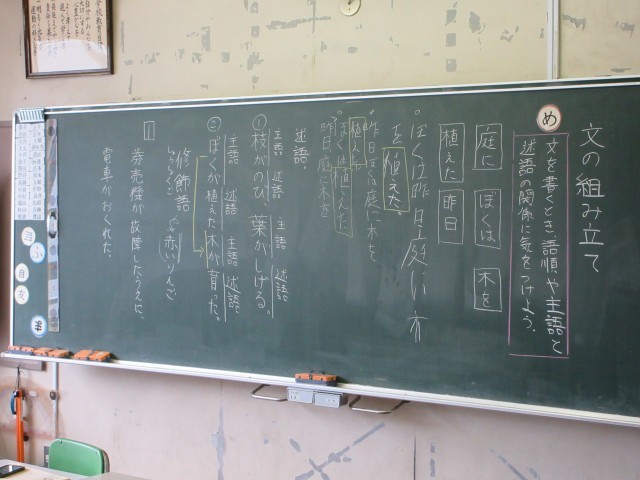 文の組み立て
め
文を書くとき、語順や主語と
述語の関係に気をつけよう。
庭に
ぼくは
木を
植えた
昨日
ぼくは昨日庭に木
を植えた。
昨日ぼくは庭に木を
植えた
ぼくは植えた
昨日庭に木を
述語。
主語
述語
主語
述語
①枝がのび、葉がしげる。
主語
述語
主語
述語
②ぼくが植えた木が育った。
修飾語
赤いりんご
券売機が故障したうえに、
電車がおくれた。